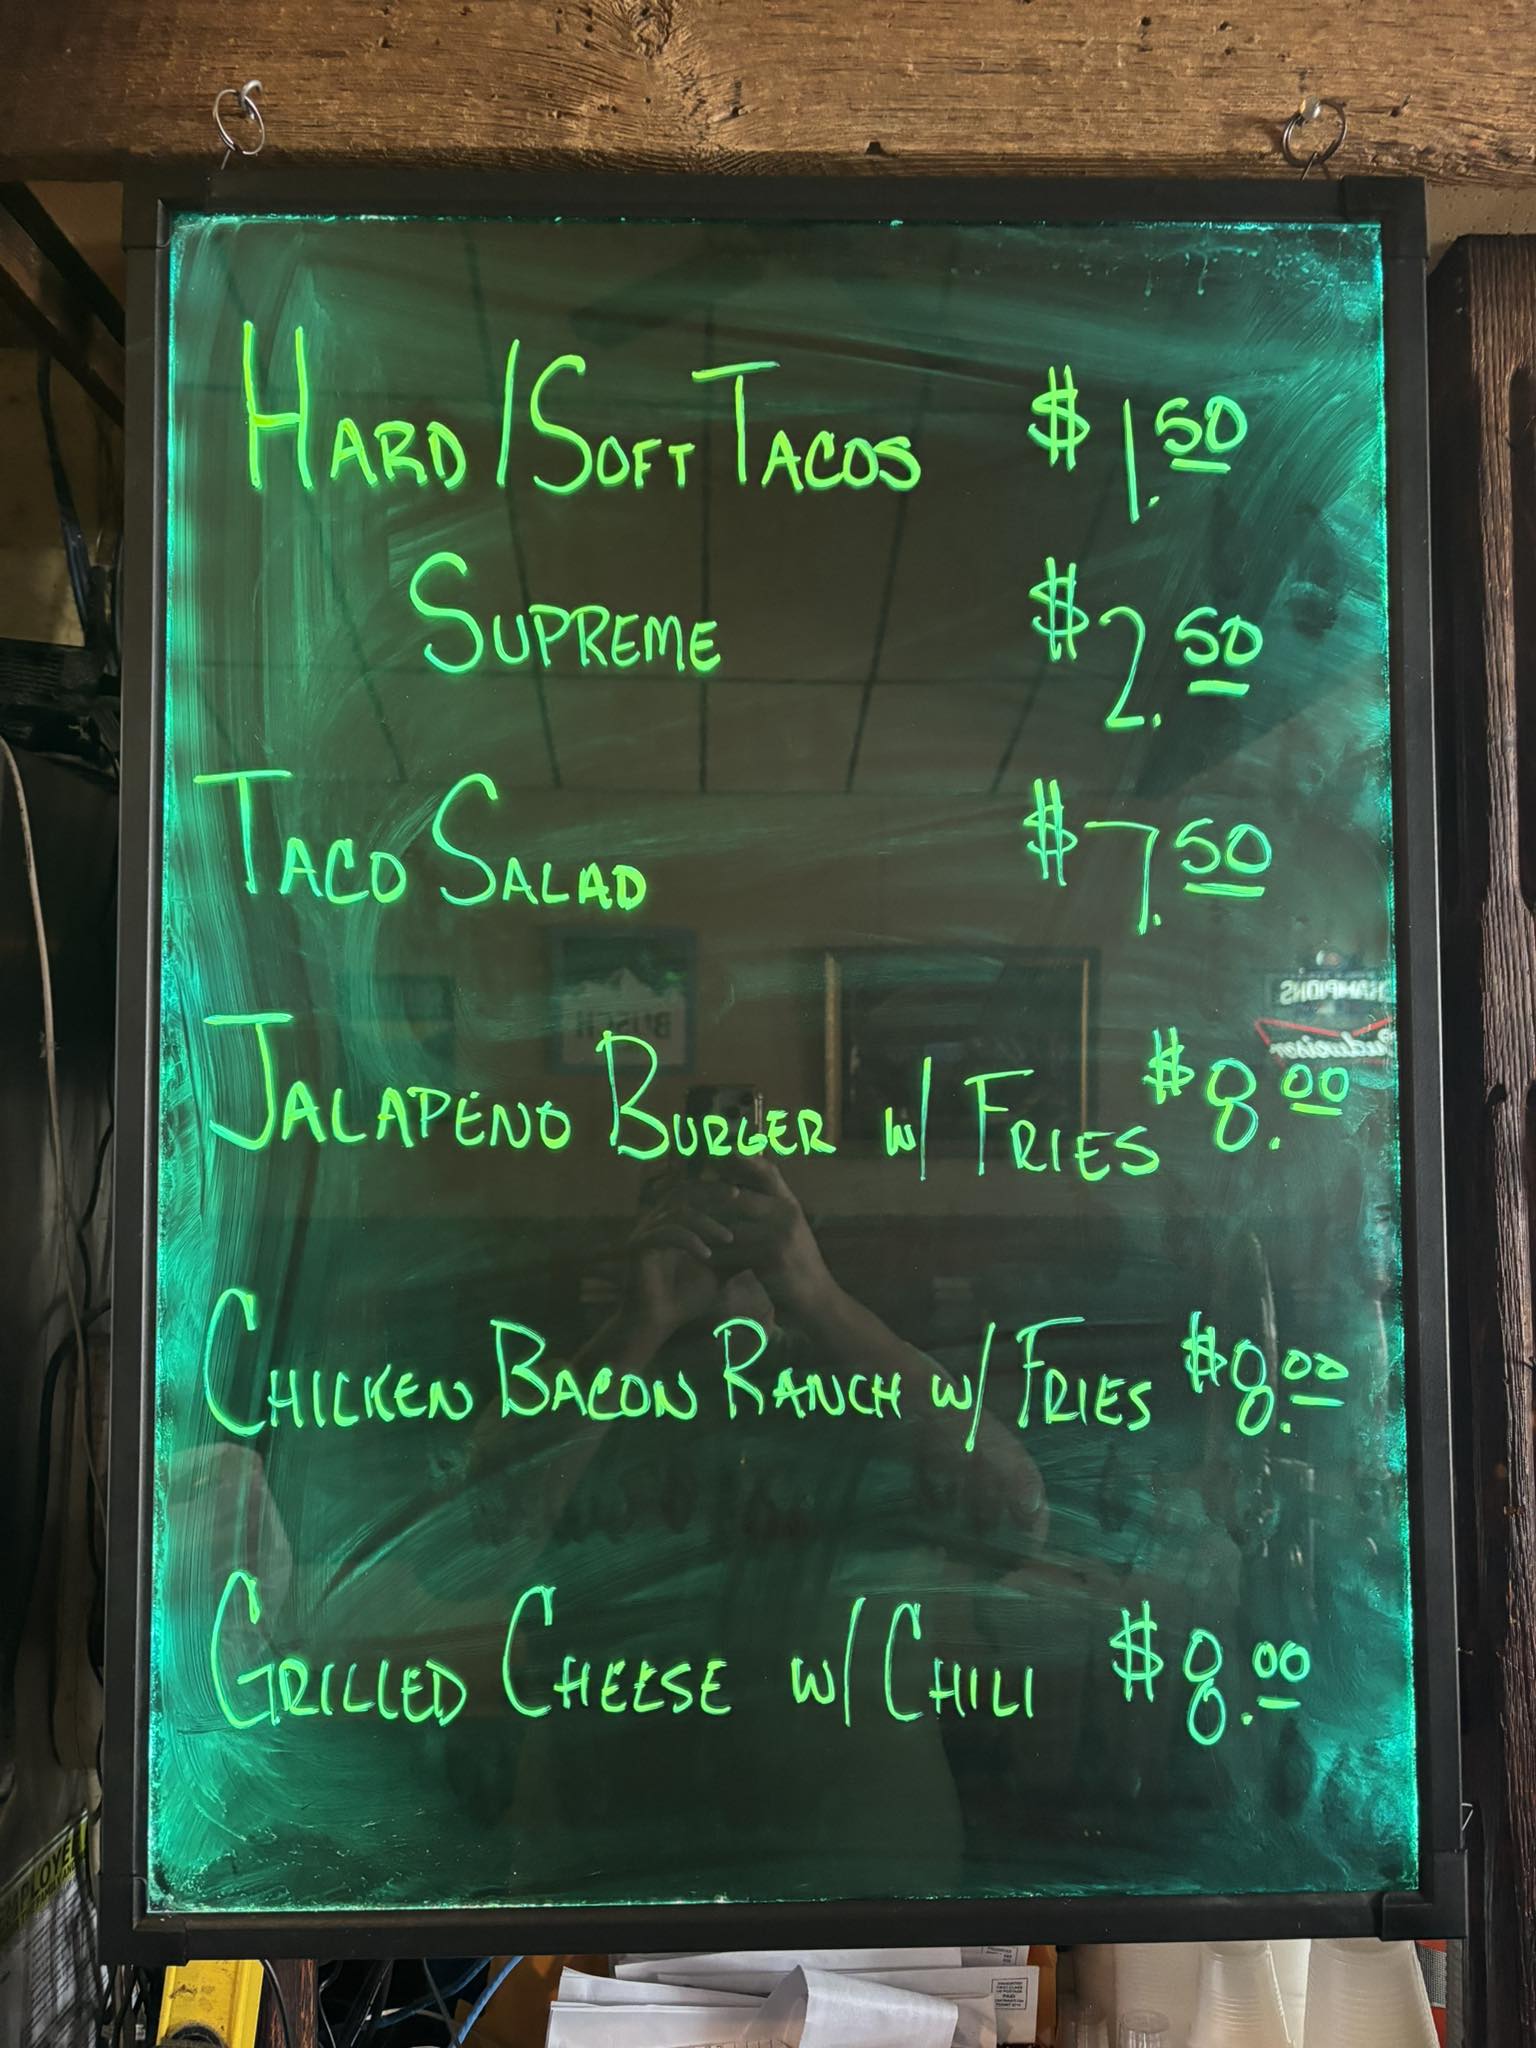 Hard/Soft Tacos $1.50
Supreme $2.50
Taco Salad $7.50
Jalapeno Burger w/ Fries $8.00
Chicken Bacon Ranch w/ Fries $8.00
Grilled Cheese w/ Chili $8.00
BUSCH
Budweiser